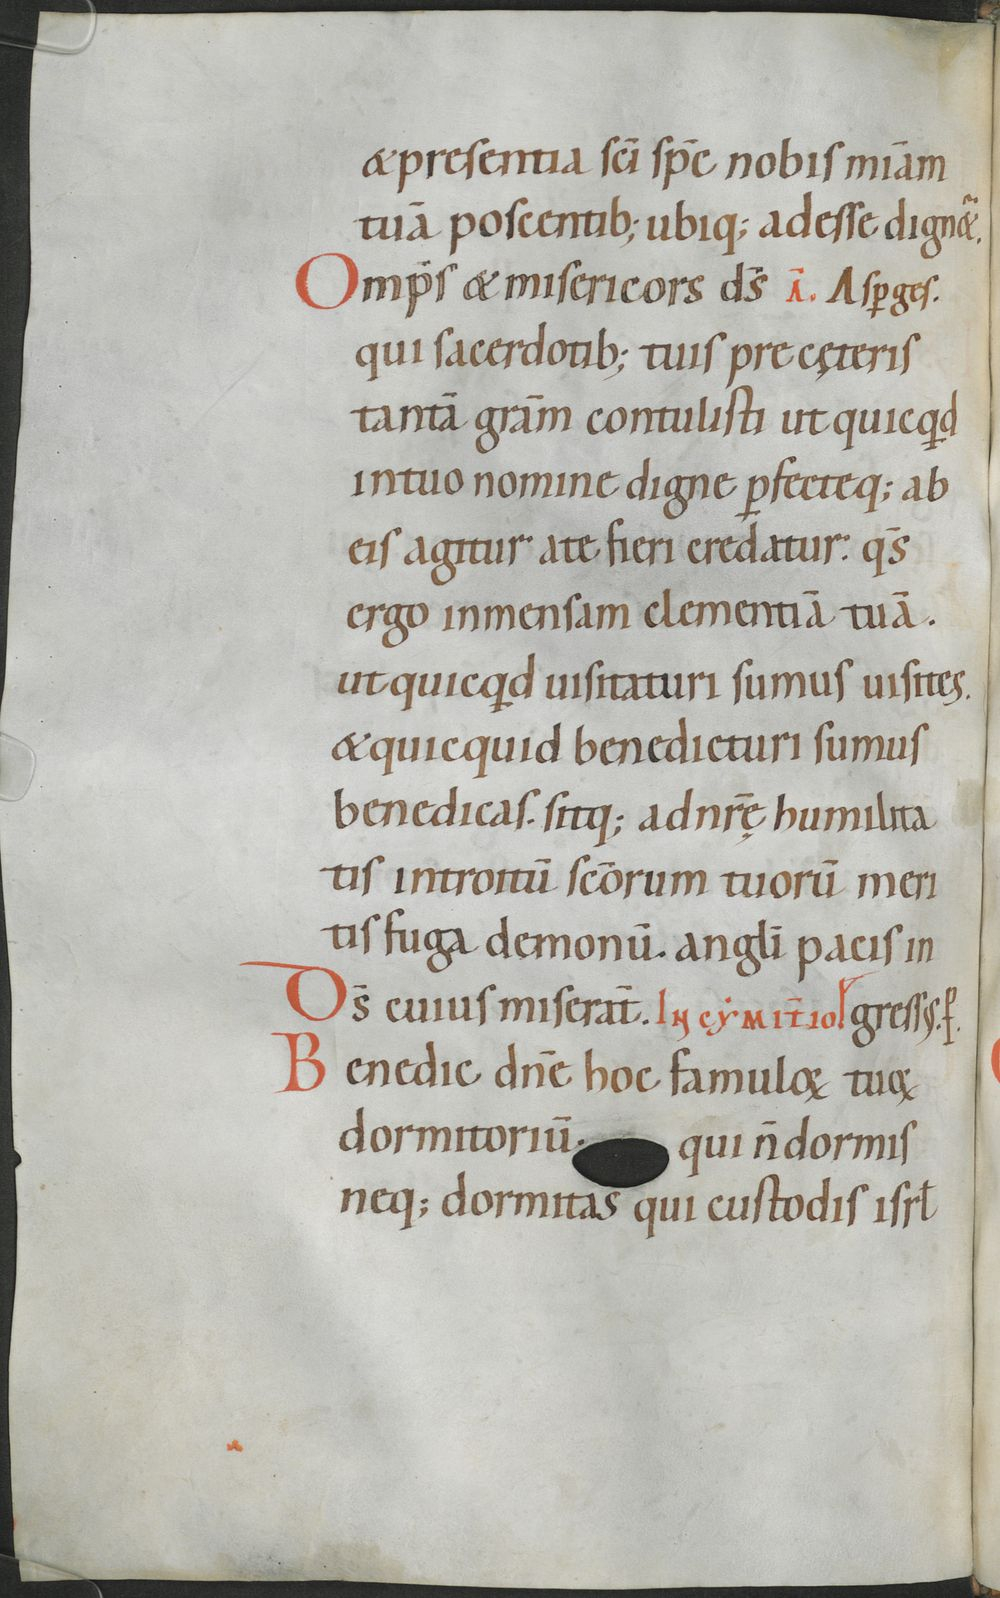 &presentia sc̄i sp̄c nobis mīam
tuā poscentib; ubiq; adesse dign&̄.
Omp̄s & misericors ds̄ ā. Asꝑges.
qui sacerdotib; tuis pre cęteris
tantā grām contulisti ut quicqͥd
intuo nomine digne ꝑfecteq; ab
eis agitur ate fieri credatur. qs̄
ergo inmensam clementiā tuā.
ut quicqͥd uisitaturi sumus uisites.
& quicquid benedicturi sumus
benedicas. sitq; adnr̄ę humilita
tis introitū scōrum tuorū meri
tis fuga demonū. angl̄i pacis in
Ds̄ cuius miserāt. gress;.
Benedic dn̄e hoc famuloꝝ tuoꝝ
dormitoriū. qui n̄ dormis
neq; dormitas qui custodis isrl̄